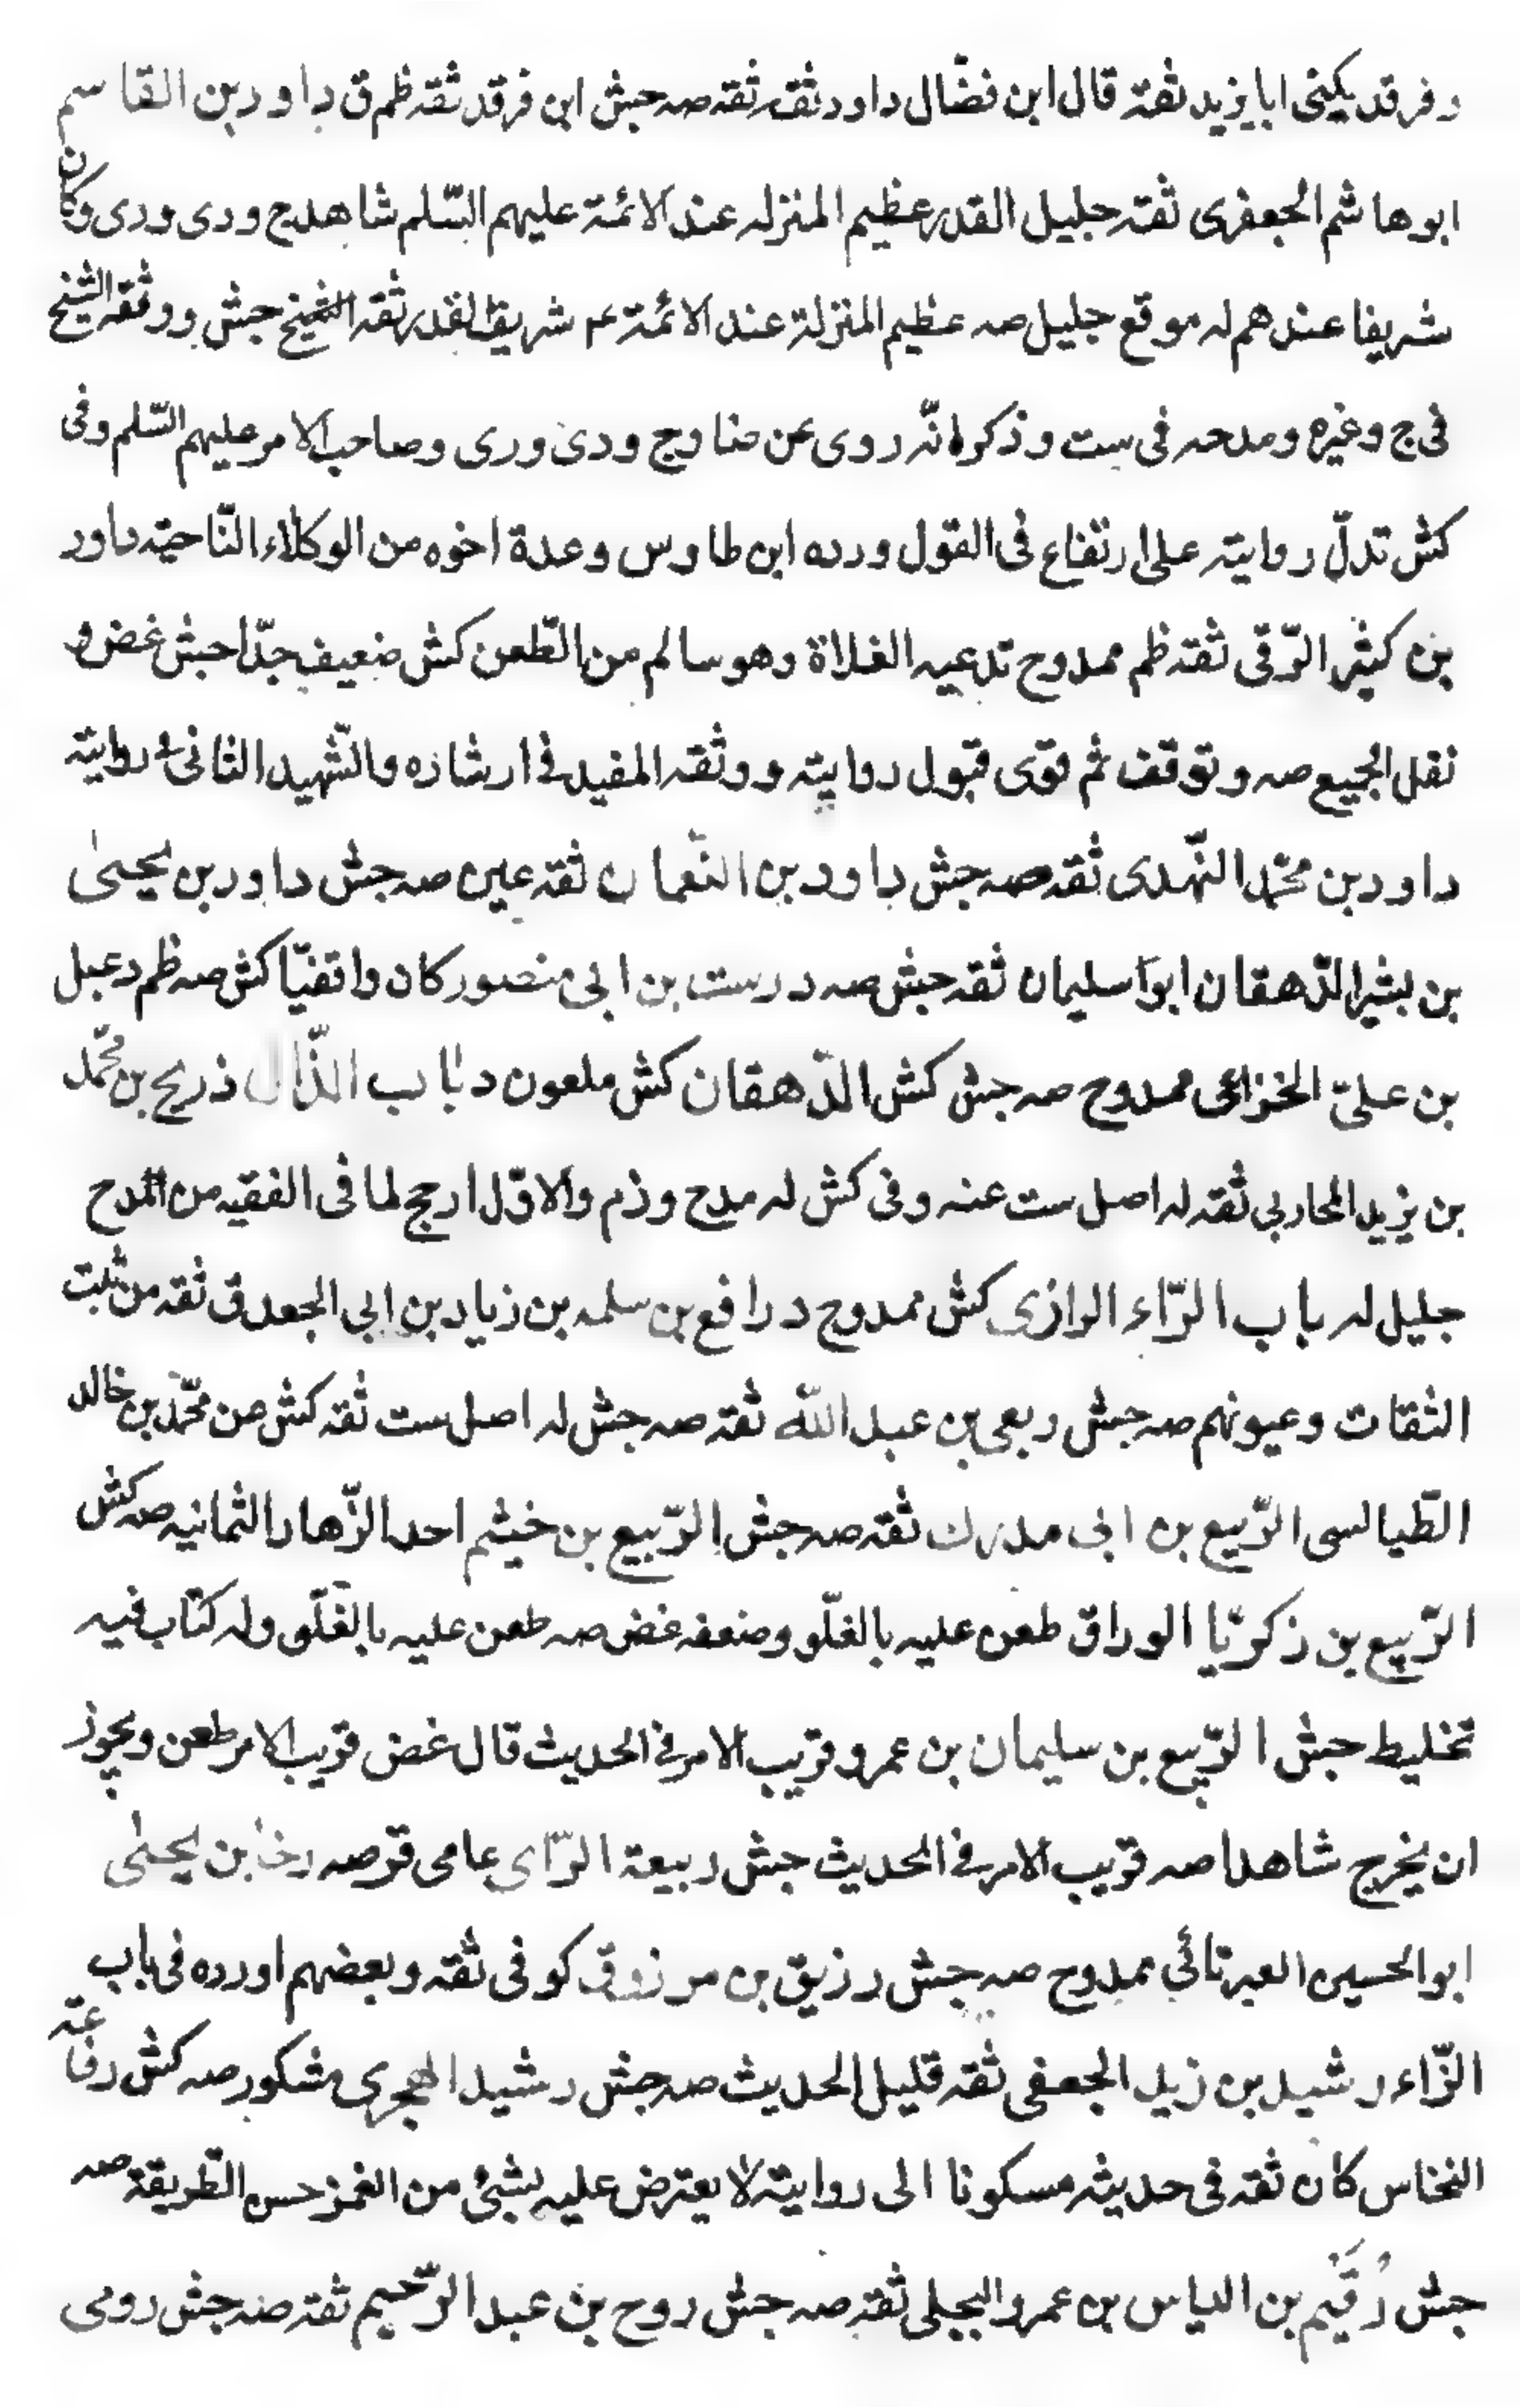 وفرقد يكنى ابا يزيد ثقة قال ابن فضّال داود ثقة ثقه صه جش ابن فرقد ثقه ظم ق داود بن القاسم
ابوهاشم الجعفرى ثقه جليل القدر عظيم المنزله عند الائمة عليهم السّلم شاهد ج ودى ورى وكان
شريفا عندهم له موقع جليل صه عظيم المنزلة عند الائمة ع شريف القدر ثقه الشيخ جش ووثقه الشيخ
فى ج وغيره ومدحه فى ست وذكر انّه روى عن ضا وج ودى ورى وصاحب الامر عليهم السّلم وفى
كش تدلّ روايته على ارتفاع فى القول ورده ابن طاوس وعدة اخوه من الوكلاء النّاحيّه داود
بن كثير الرّقى ثقه ظم ممدوح تدعيه الغلاة وهو سالم من الطّعن كش ضعيف جدّا جش غض و
نقل الجميع صه وتوقف ثم قوّى قبول روايته ووثقه المفيد فى ارشاده والشّهيد الثانى روايته
داود بن محمّد النّهدى ثقه صه جش داود بن النّعمان ثقه عين صه جش داود بن يحيىٰ
بن بشير الدّهقان ابو سليمان ثقه جش صه درست بن ابى منصور كان واقفيّا كش صه ظم دعبل
بن علىّ الخزاعى ممدوح صه جش كش الدّهقان كش ملعون د باب الذّال ذريح بن محمّد
بن يزيد المحاربي ثقه له اصل ست عنه وفى كش له مدح وذم والاوّل ارجح لما فى الفقيه من المدح
جليل له باب الرّاء الرازى كش ممدوح د رافع بن سلمه بن زياد بن ابي الجعد ق ثقه من ثبت
الثقات وعيونهم صه جش ربعى بن عبد اللّه ثقه صه جش له اصل ست ثقه كش عن محمّد بن خالد
الطّيالسى الرّبيع بن ابى مدرك ثقه صه جش الرّبيع بن خيثم احد الزّهاد الثمانيه صه كش
الرّبيع بن زكريّا الوراق طعن عليه بالغلّو وضعفه غض صه طعن عليه بالغلّو وله كتاب فيه
تخليط جش الرّبيع بن سليمان بن عمرو قريب الامر فى الحديث قال غض قريب الامر طعن ويجوز
ان يخرج شاهدا صه قريب الامر فى الحديث جش ربيعة الرّاى عامى قر صه رخا بن يحيىٰ
ابو الحسين العبرتائي ممدوح صه جش رزيق بن مرزوق كوفى ثقه وبعضهم اورده فى باب
الزّاء رشيد بن زيد الجعفى ثقه قليل الحديث صه جش رشيد الهجرى مشكور صه كش رفاعة
النخاس كان ثقه فى حديثه مسكونا الى روايته لا يعترض عليه بشئ من الغمز حسن الطّريقة صه
جش رُقَيم بن الياس بن عمرو البجلى ثقه صه جش روح بن عبد الرّحيم ثقه صه جش رومى